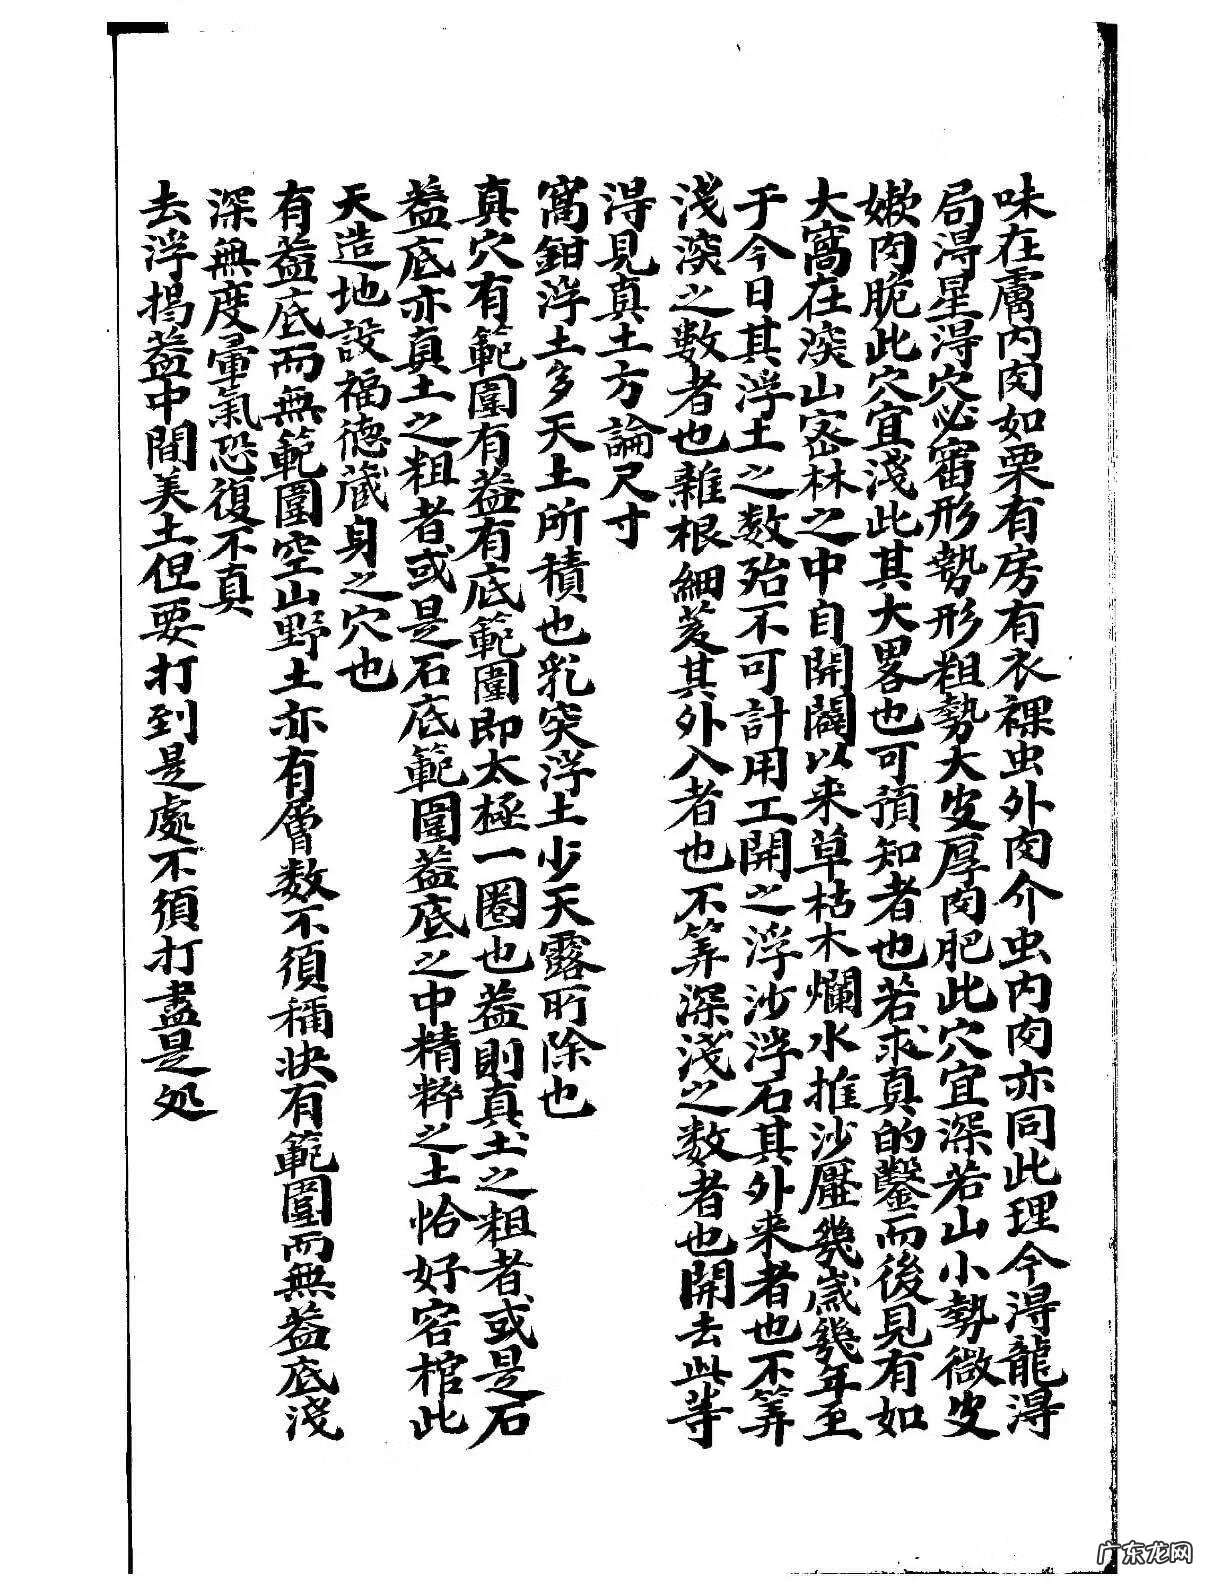 味在膚内肉如栗有房有衣裸虫外肉介虫内肉亦同此理今淂龍淂
局淂星淂穴必審形勢形粗勢大皮厚肉肥此穴宜深若山小勢微皮
嫰肉脆此穴宜淺此其大畧也可預知者也若求真的鑿而後見有如
大窩在深山密林之中自開闢以来草枯木爛水推沙壓幾歲幾年至
于今日其浮土之数殆不可計用工開之浮沙浮石其外来者也不筭
淺深之數者也雜根細荄其外入者也不筭深淺之数者也開去此等
淂見真土方論尺寸
窩鉗浮土多天土所積也乳突浮土少天露所除也
真穴有範圍有葢有底範圍即太極一圈也葢則真土之粗者或是石
葢底亦真土之粗者或是石底範圍葢底之中精粹之土恰好容棺此
天造地設福德蔵身之穴也
有葢底而無範圍空山野土亦有層数不須稱决有範圍而無葢底淺
深無度暈氣恐復不真
去浮揭葢中間美土但要打到是處不須打盡是处
广东龙网